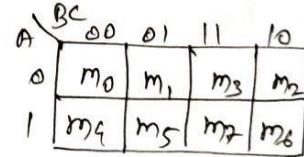 BC
A 00 01 11 10
0 m0 m1 m3 m2
1 m4 m5 m7 m6